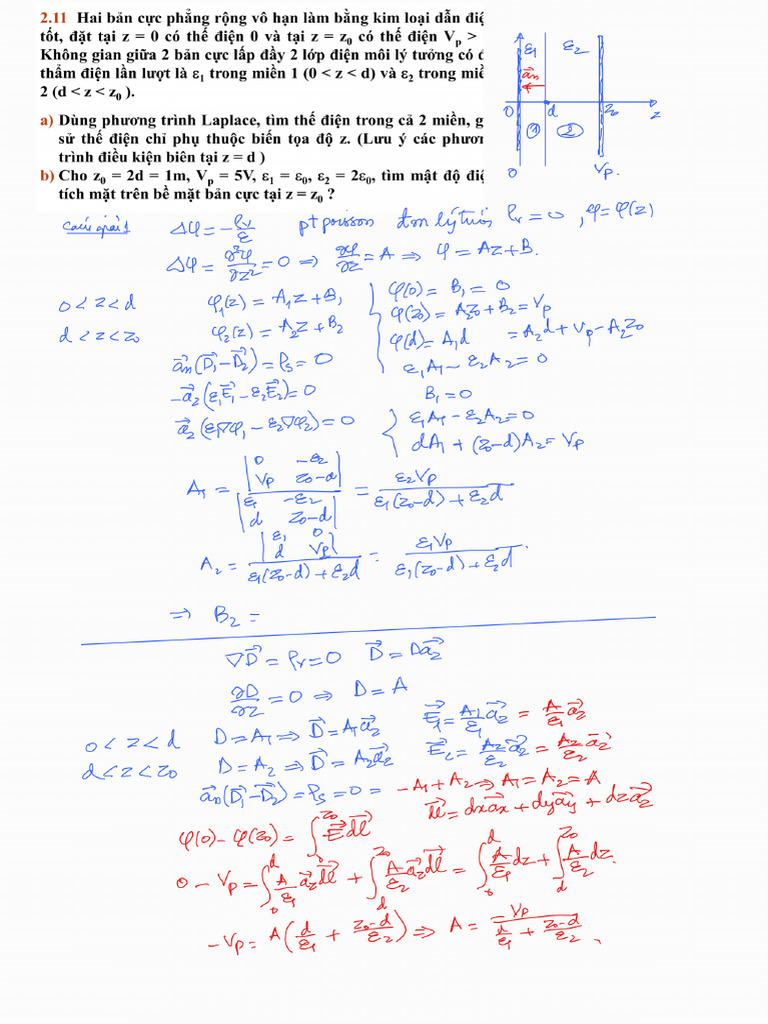 2.11 Hai bản cực phẳng rộng vô hạn làm bằng kim loại dẫn điệ
tốt, đặt tại z = 0 có thế điện 0 và tại z = z₀ có thế điện Vₚ >
Không gian giữa 2 bản cực lấp đầy 2 lớp điện môi lý tưởng có đ
thẩm điện lần lượt là ε₁ trong miền 1 (0 < z < d) và ε₂ trong miề
2 (d < z < z₀ ).
a) Dùng phương trình Laplace, tìm thế điện trong cả 2 miền, g
sử thế điện chỉ phụ thuộc biến tọa độ z. (Lưu ý các phươn
trình điều kiện biên tại z = d )
b) Cho z₀ = 2d = 1m, Vₚ = 5V, ε₁ = ε₀, ε₂ = 2ε₀, tìm mật độ điệ
tích mặt trên bề mặt bản cực tại z = z₀ ?
ε₁ ε₂
a⃗n
0 d z₀ z
① ②
0 Vp.
Cách giải 1 Δφ = -ρv/ε pt poisson đm lý tưởng ρv = 0, φ = φ(z)
Δφ = ∂²φ/∂z² = 0 ⇒ ∂φ/∂z = A ⇒ φ = Az + B.
0 < z < d φ₁(z) = A₁z + B₁
d < z < z₀ φ₂(z) = A₂z + B₂
φ(0) = B₁ = 0
φ(z₀) = A₂z₀ + B₂ = Vp
φ(d) = A₁d = A₂d + Vp - A₂z₀
ε₁A₁ - ε₂A₂ = 0
a⃗n(D⃗₁ - D⃗₂) = ρs = 0
-a⃗z(ε₁E⃗₁ - ε₂E⃗₂) = 0
a⃗z(ε₁∇φ₁ - ε₂∇φ₂) = 0
B₁ = 0
ε₁A₁ - ε₂A₂ = 0
dA₁ + (z₀-d)A₂ = Vp
A₁ = |0 -ε₂; Vp z₀-d| / |ε₁ -ε₂; d z₀-d| = ε₂Vp / (ε₁(z₀-d) + ε₂d)
A₂ = |ε₁ 0; d Vp| / (ε₁(z₀-d) + ε₂d) = ε₁Vp / (ε₁(z₀-d) + ε₂d).
⇒ B₂ =
∇D⃗ = ρv = 0 D⃗ = Da⃗z
∂D/∂z = 0 ⇒ D = A
0 < z < d D = A₁ ⇒ D⃗ = A₁a⃗z E⃗₁ = A₁/ε₁ a⃗z = A/ε₁ a⃗z
d < z < z₀ D = A₂ ⇒ D⃗ = A₂a⃗z E⃗₂ = A₂/ε₂ a⃗z = A₂/ε₂ a⃗z
a⃗n(D⃗₁ - D⃗₂) = ρs = 0 = -A₁ + A₂ ⇒ A₁ = A₂ = A
dl⃗ = dxa⃗x + dya⃗y + dza⃗z
φ(0) - φ(z₀) = ∫₀^z₀ E⃗dl⃗
0 - Vp = ∫₀^d A/ε₁ a⃗z dl⃗ + ∫d^z₀ A/ε₂ a⃗z dl⃗ = ∫₀^d A/ε₁ dz + ∫d^z₀ A/ε₂ dz.
-Vp = A(d/ε₁ + (z₀-d)/ε₂) ⇒ A = -Vp / (d/ε₁ + (z₀-d)/ε₂)